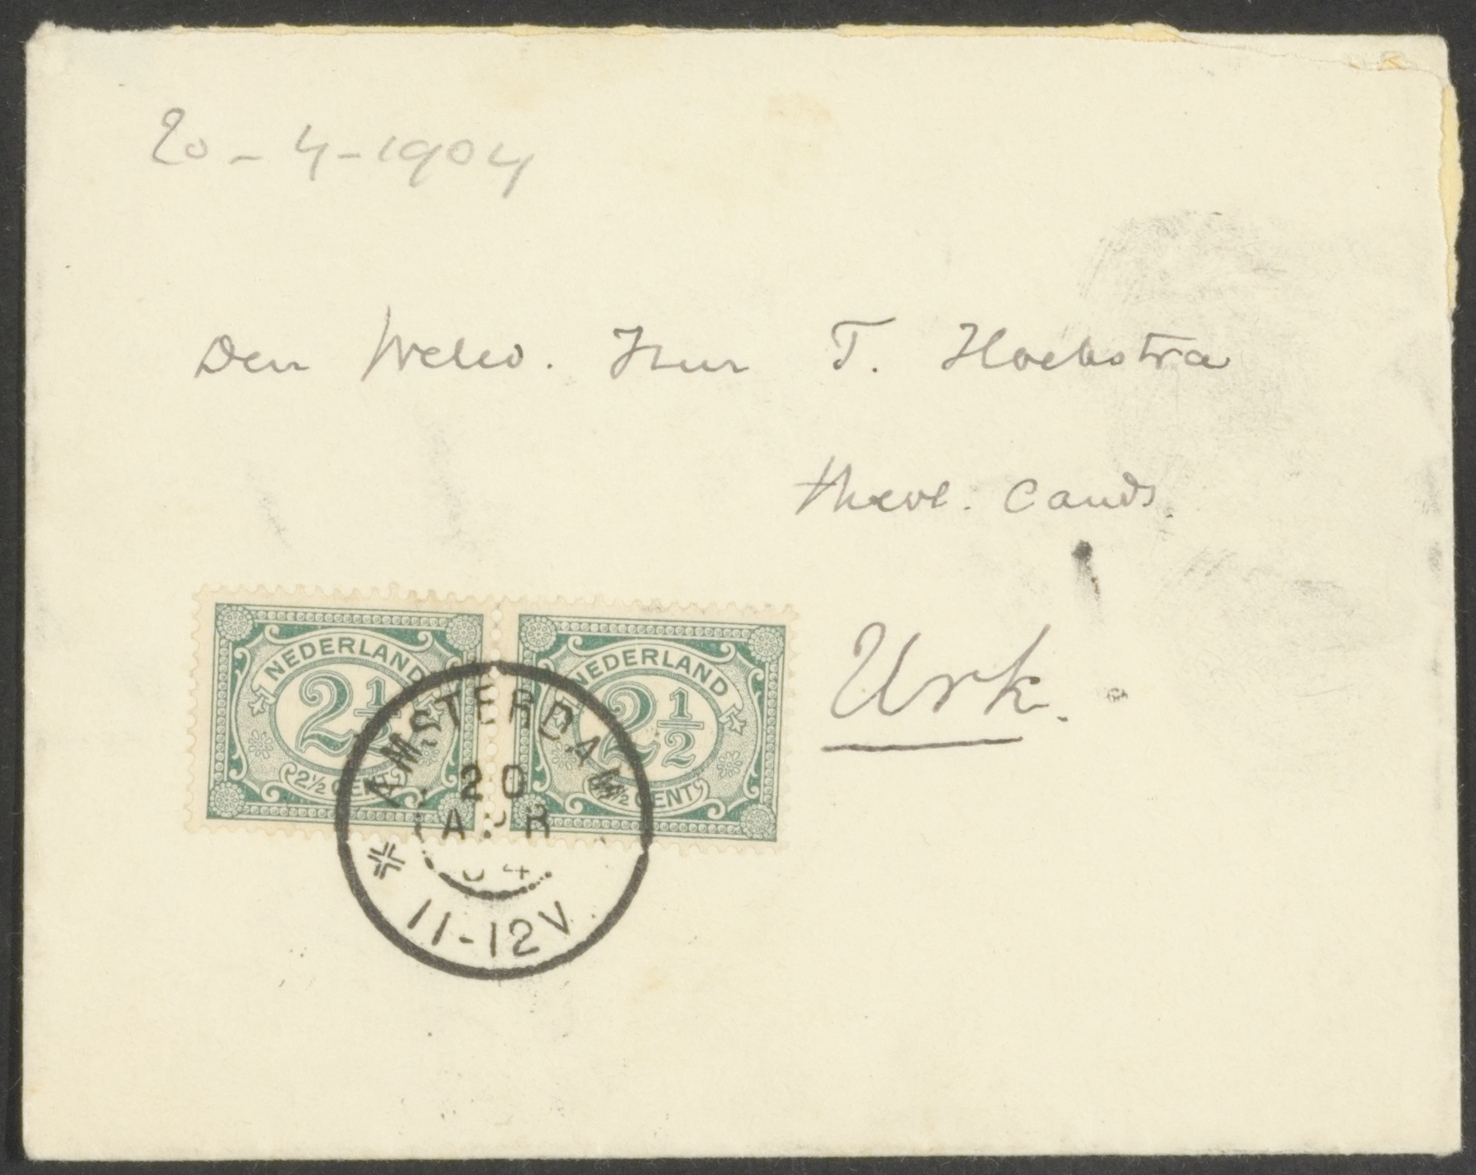 20-4-1904
Den Weled. Heer T. Hoekstra
theol. cand.
Urk.
NEDERLAND
2½
2½ CENT
NEDERLAND
2½
2½ CENT
AMSTERDAM
20
APR
04
11-12V